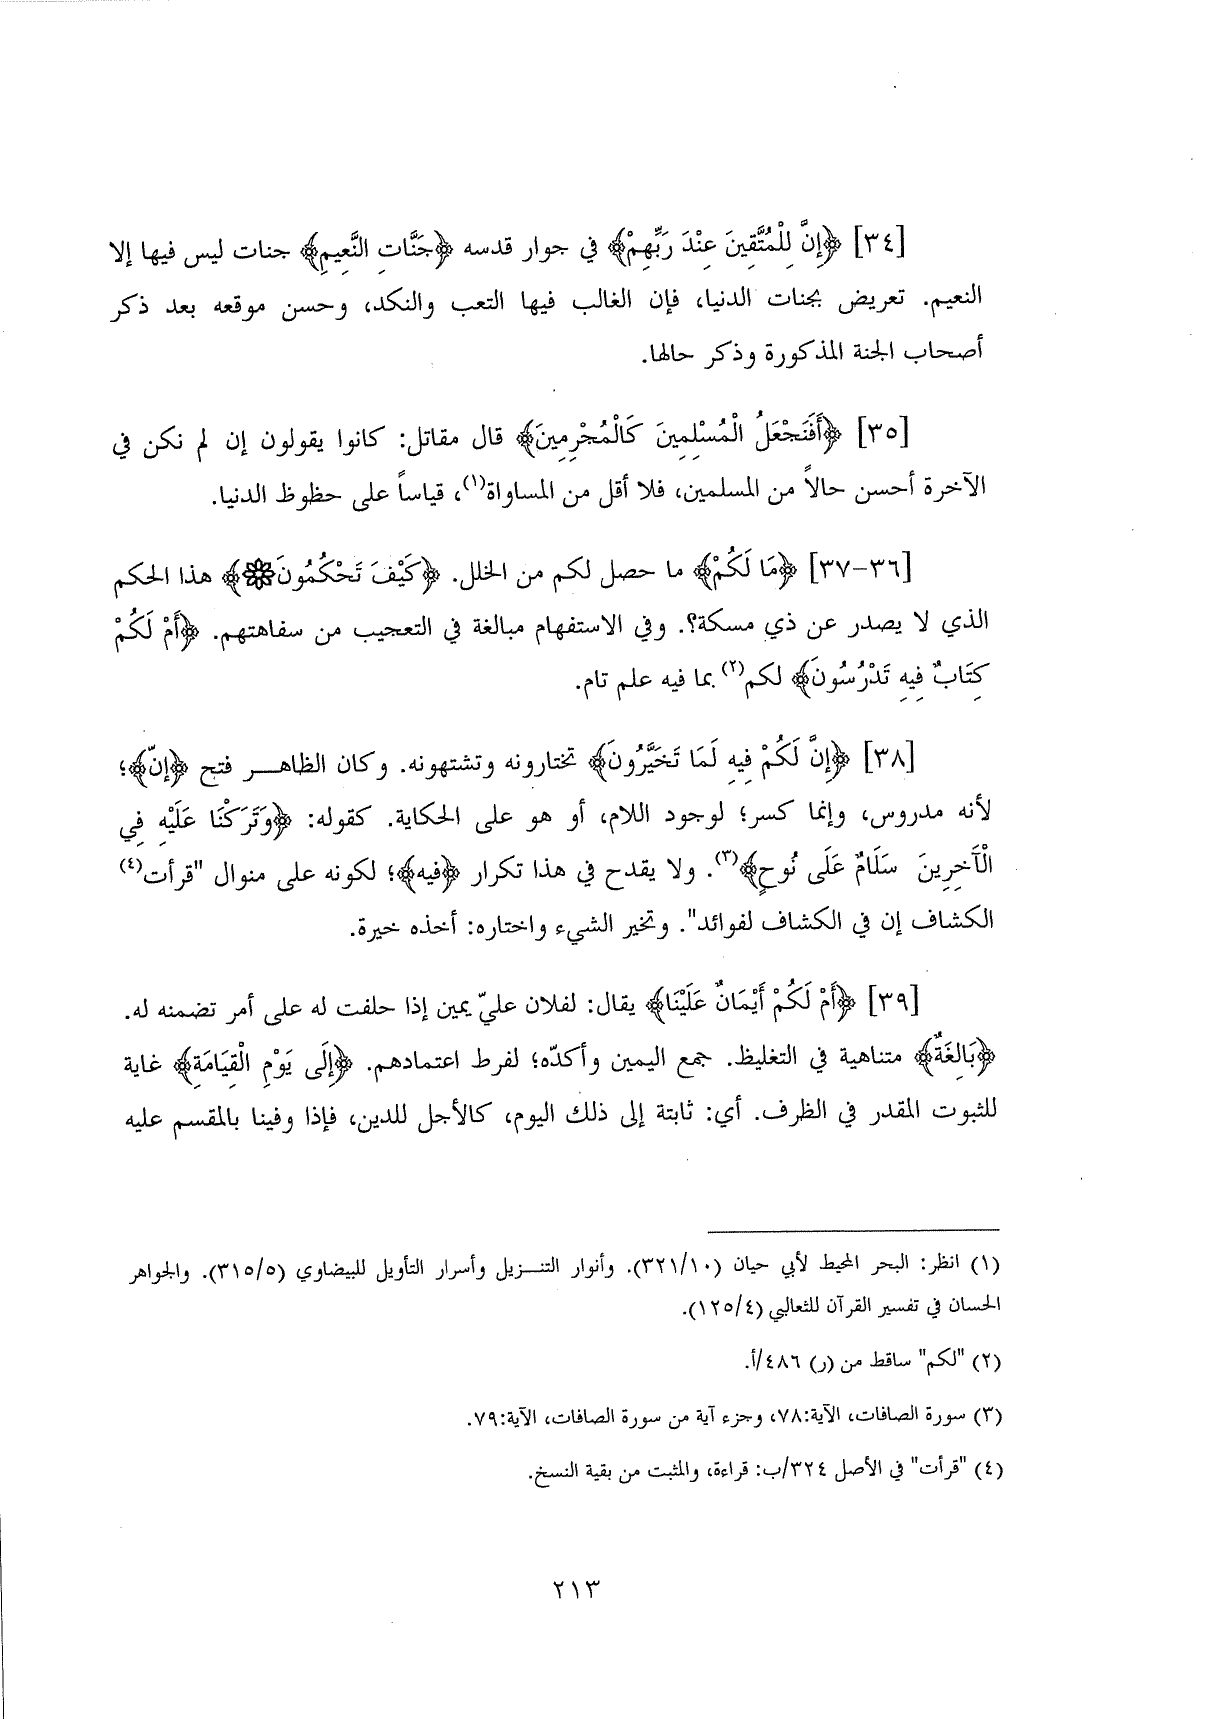 [٣٤] ﴿إِنَّ لِلْمُتَّقِينَ عِنْدَ رَبِّهِمْ﴾ في جوار قدسه ﴿جَنَّاتِ النَّعِيمِ﴾ جنات ليس فيها إلا
النعيم. تعريض بجنات الدنيا، فإن الغالب فيها التعب والنكد، وحسن موقعه بعد ذكر
أصحاب الجنة المذكورة وذكر حالها.
[٣٥] ﴿أَفَنَجْعَلُ الْمُسْلِمِينَ كَالْمُجْرِمِينَ﴾ قال مقاتل: كانوا يقولون إن لم نكن في
الآخرة أحسن حالاً من المسلمين، فلا أقل من المساواة(١)، قياساً على حظوظ الدنيا.
[٣٦-٣٧] ﴿مَا لَكُمْ﴾ ما حصل لكم من الخلل. ﴿كَيْفَ تَحْكُمُونَ۝﴾ هذا الحكم
الذي لا يصدر عن ذي مسكة؟. وفي الاستفهام مبالغة في التعجيب من سفاهتهم. ﴿أَمْ لَكُمْ
كِتَابٌ فِيهِ تَدْرُسُونَ﴾ لكم(٢) بما فيه علم تام.
[٣٨] ﴿إِنَّ لَكُمْ فِيهِ لَمَا تَخَيَّرُونَ﴾ تختارونه وتشتهونه. وكان الظاهــر فتح ﴿إنّ﴾؛
لأنه مدروس، وإنما كسر؛ لوجود اللام، أو هو على الحكاية. كقوله: ﴿وَتَرَكْنَا عَلَيْهِ فِي
الْآَخِرِينَ سَلَامٌ عَلَى نُوحٍ﴾(٣). ولا يقدح في هذا تكرار ﴿فيه﴾؛ لكونه على منوال "قرأت(٤)
الكشاف إن في الكشاف لفوائد". وتخير الشيء واختاره: أخذه خيرة.
[٣٩] ﴿أَمْ لَكُمْ أَيْمَانٌ عَلَيْنَا﴾ يقال: لفلان عليّ يمين إذا حلفت له على أمر تضمنه له.
﴿بَالِغَةٌ﴾ متناهية في التغليظ. جمع اليمين وأكدّه؛ لفرط اعتمادهم. ﴿إِلَى يَوْمِ الْقِيَامَةِ﴾ غاية
للثبوت المقدر في الظرف. أي: ثابتة إلى ذلك اليوم، كالأجل للدين، فإذا وفينا بالمقسم عليه
(١) انظر: البحر المحيط لأبي حيان (٣٢١/١٠). وأنوار التنــزيل وأسرار التأويل للبيضاوي (٣١٥/٥). والجواهر
الحسان في تفسير القرآن للثعالبي (١٢٥/٤).
(٢) "لكم" ساقط من (ر) ٤٨٦/أ.
(٣) سورة الصافات، الآية:٧٨، وجزء آية من سورة الصافات، الآية:٧٩.
(٤) "قرأت" في الأصل ٣٢٤/ب: قراءة، والمثبت من بقية النسخ.
٢١٣